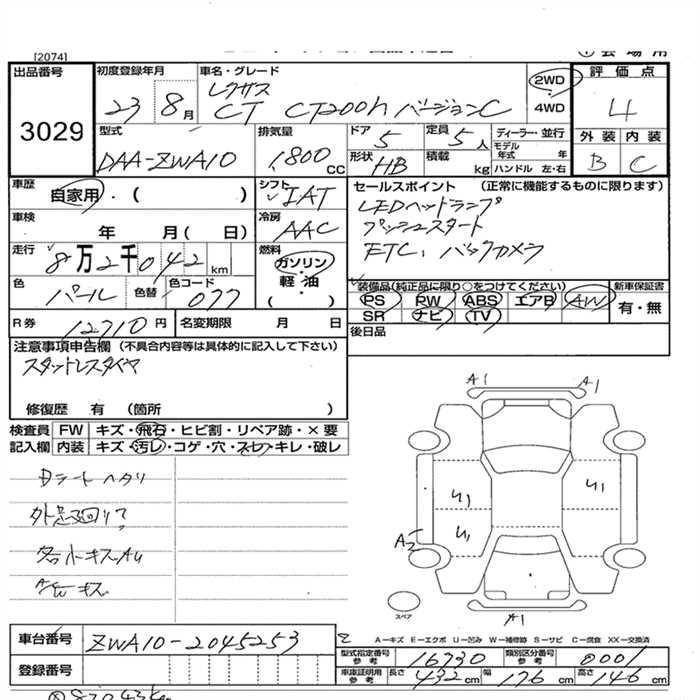 [2074]
出品番号
3029
初度登録年月
23年8月
車名・グレード
レクサス
CT CT200h バージョンC
2WD
4WD
評価点
4
外装 内装
B C
型式
DAA-ZWA10
排気量
1,800 CC
ドア
5
定員
5人
形状
HB
積載
kg
ディーラー・並行
モデル年式 年
ハンドル 左・右
車歴
自家用・( )
シフト
IAT
セールスポイント (正常に機能するものに限ります)
LEDヘッドランプ
プッシュスタート
ETC、バックカメラ
車検
年 月( 日)
冷房
AAC
走行
8万2千042km
燃料
ガソリン・
軽油・
( )
色
パール
色替
色コード
077
装備品(純正品に限り○をつけてください)
PS PW ABS エアB AW
SR ナビ TV
新車保証書
有・無
R券
12710円
名変期限 月 日
後日品
注意事項申告欄 (不具合内容等は具体的に記入して下さい)
スタットレスタイヤ
修復歴 有 (箇所 )
検査員 FW キズ・飛石・ヒビ割・リペア跡・×要
記入欄 内装 キズ・汚レ・コゲ・穴・スレ・キレ・破レ
Dシートヘタリ
各小キズAU
A1 A1
U1 U1
U1
A2
A1
スペア
車台番号
ZWA10-2045253
登録番号
A-キズ E-エクボ U-凹み W-補修跡 S-サビ C-腐食 XX-交換済
型式指定番号 参考
16730
類別区分番号 参考
0001
車庫証明用 参考
長さ 432cm 幅 176cm 高さ 146cm